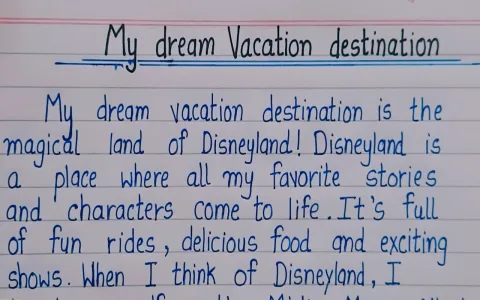 My dream Vacation destination
My dream vacation destination is the
magical land of Disneyland! Disneyland is
a place where all my favorite stories
and characters come to life. It's full
of fun rides, delicious food and exciting
shows. When I think of Disneyland, I